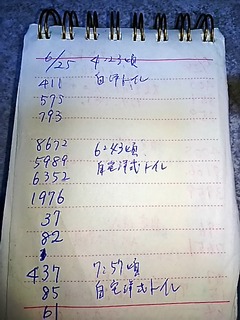 6/25 4:23頃
411 自洋トイレ
575
793
8672 6:43頃
5989 自宅洋式トイレ
6352
1976
37
82
437 7:57頃
85 自宅洋式トイレ
61